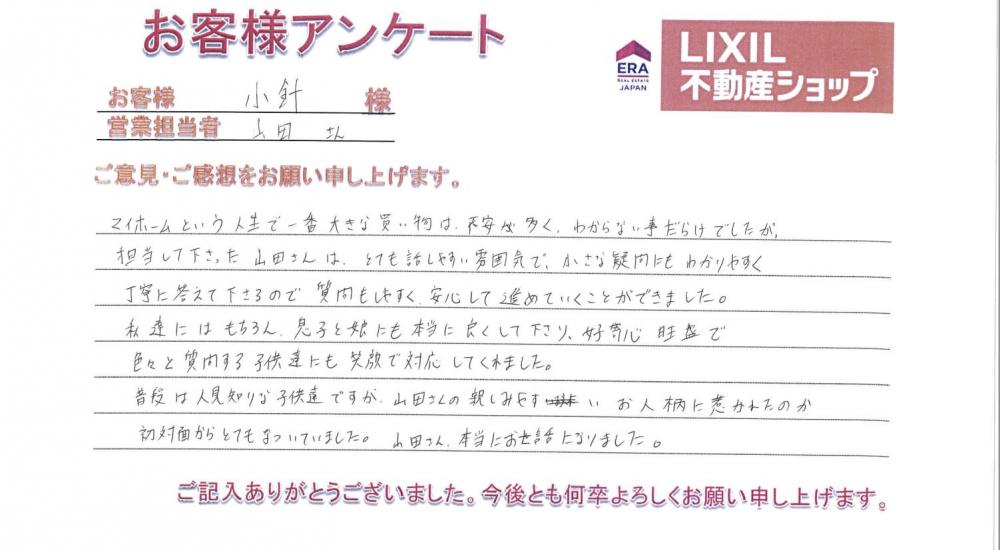 お客様アンケート
ERA
REAL ESTATE
JAPAN
LIXIL
不動産ショップ
お客様 小針 様
営業担当者 山田 さん
ご意見・ご感想をお願い申し上げます。
マイホームという人生で一番大きな買い物は、不安が多く、わからない事だらけでしたが、
担当して下さった山田さんは、とても話しやすい雰囲気で、小さな疑問にもわかりやすく
丁寧に答えて下さるので質問もしやすく、安心して進めていくことができました。
私達にはもちろん、息子と娘にも本当に良くして下さり、好奇心旺盛で
色々と質問する子供達にも笑顔で対応してくれました。
普段は人見知りな子供達ですが、山田さんの親しみやすい お人柄に惹かれたのか
初対面からとてもなついていました。 山田さん、本当にお世話になりました。
ご記入ありがとうございました。今後とも何卒よろしくお願い申し上げます。